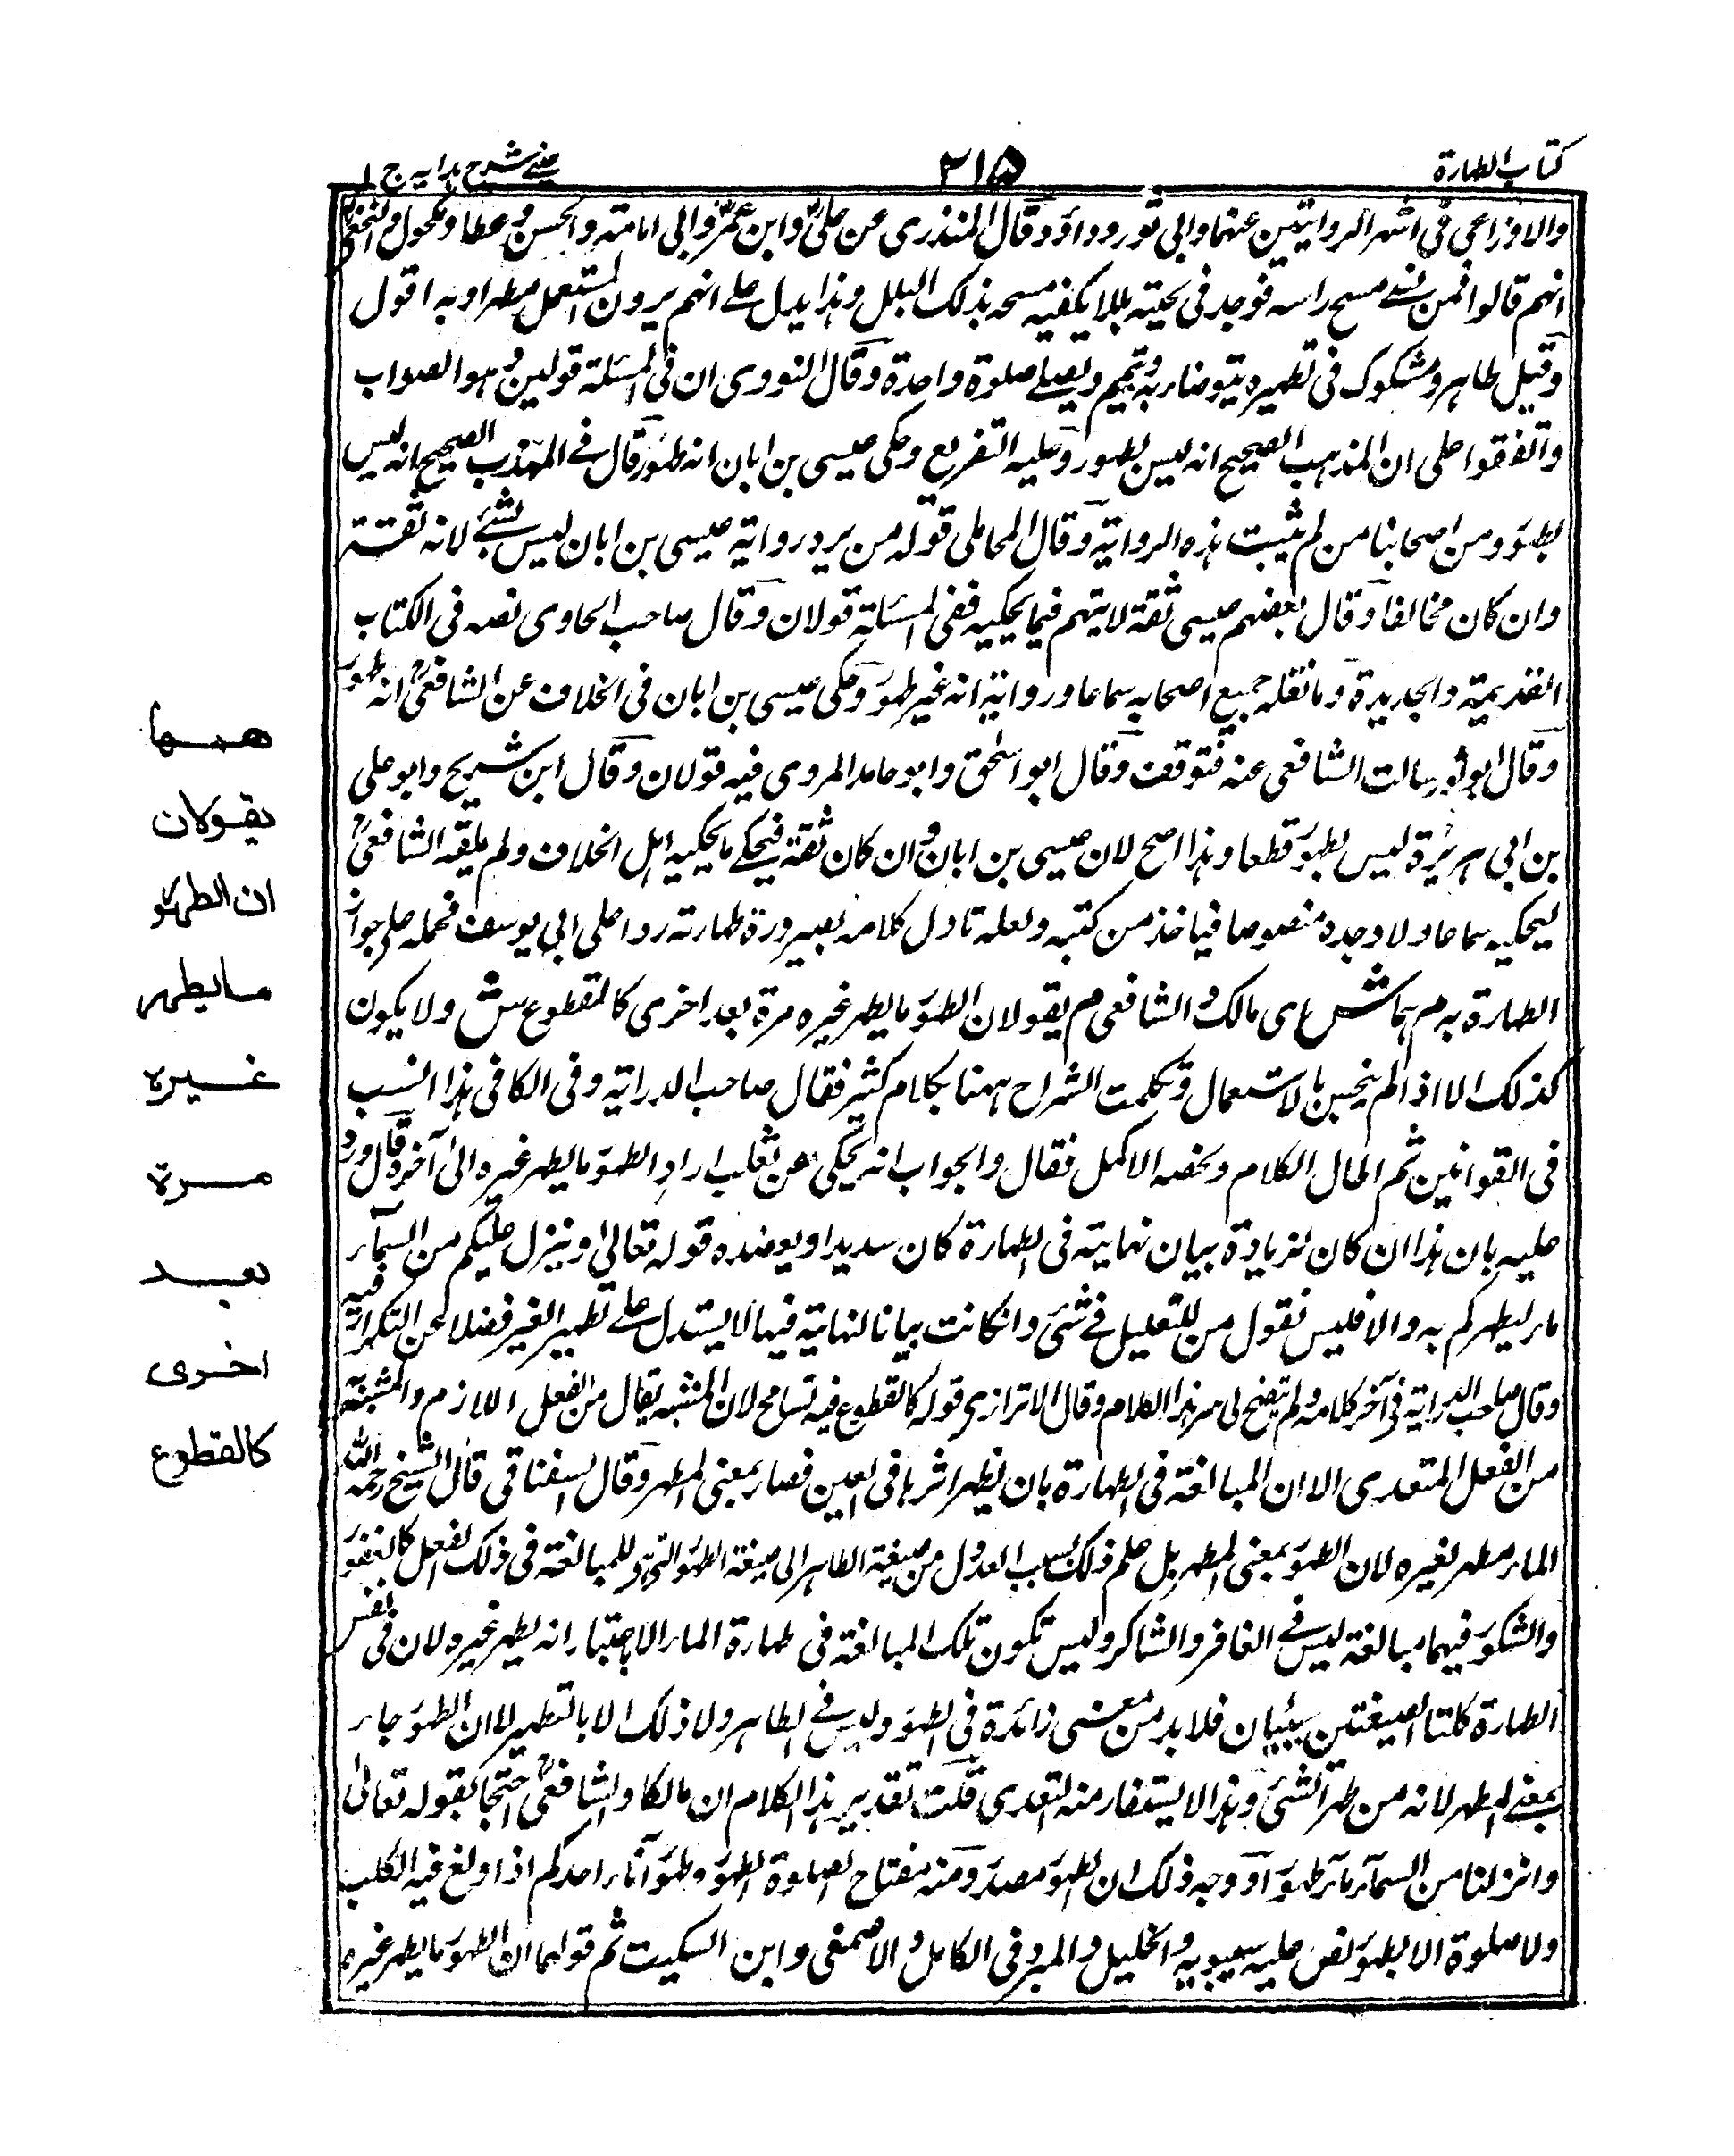 كتاب الطهارة
٢١٥
عينى شرح هدايه ج ١
والاوزاعى فى اشهر الروايتين عنهما وابى ثور وداؤد وقال المنذرى عن على وابن عمر وابى امامة والحسن وعطا ومكحول والنخعى
انهم قالوا فمن نسى مسح راسه فوجد فى لحيته بللا يكفيه مسحه بذلك البلل وهذا يدل على انهم يرون المستعمل مطهرا وبه اقول
وقيل طاهر ومشكوك فى تطهيره يتوضاء به ويتيمم ويصلى صلوة واحدة وقال النووى ان فى المسئلة قولين وهو الصواب
واتفقوا على ان المذهب الصحيح انه ليس بطهور وعليه التفريع وحكى عيسى بن ابان انه طهور قال فى المهذب الصحيح انه ليس
بطهور ومن اصحابنا من لم يثبت هذه الرواية وقال المحاملى قوله من يرد رواية عيسى بن ابان ليس بشئ لانه ثقة
وان كان مخالفا وقال بعضهم عيسى ثقة لا يتهم فيما يحكيه ففى المسئلة قولان وقال صاحب الحاوى نصه فى الكتاب
القديمة والجديدة وما نقله جميع اصحابه سماعا ورواية انه غير طهور وحكى عيسى بن ابان فى الخلاف عن الشافعى انه طهور
وقال ابو ثور سالت الشافعى عنه فتوقف وقال ابو اسحق وابو حامد المروى فيه قولان وقال ابن شريح وابو على
بن ابى هريرة ليس بطهور قطعا وهذا اصح لان عيسى بن ابان وان كان ثقة فيحكى ما يحكيه اهل الخلاف ولم يلقه الشافعى
ليحكيه سماعا ولا وجده منصوصا فياخذ من كتبه ولعله تاول كلامه بصيرورة طهارته ردا على ابى يوسف فحمله على جواز
الطهارة به م هما ش اى مالك والشافعى م يقولان الطهور ما يطهر غيره مرة بعد اخرى كالقطوع ش ولا يكون
كذلك الا اذا لم ينجس بالاستعمال وتكلمت الشراح ههنا بكلام كثير فقال صاحب الدراية وفى الكافى هذا انسب
فى القوانين ثم اطال الكلام ولخصه الاكمل فقال والجواب انه يحكى عن ثعلب اراد الطهور ما يطهر غيره الى آخره قال ورد
عليه بان هذا ان كان لزيادة بيان نهايته فى الطهارة كان سديدا ويعضده قوله تعالى وينزل عليكم من السمآء
ماء ليطهركم به والا فليس فعول من التفعيل فى شئ وان كانت بيانا لنهاية فيها لا يستدل على تطهير الغير فضلا عن التكرار فيه
وقال صاحب الدراية فى آخر كلامه ولم يتضح لى سر هذا الكلام وقال الاترازى قوله كالقطوع فيه تسامح لان المشبه يقال من الفعل اللازم والمشبه به
من الفعل المتعدى الا ان المبالغة فى الطهارة بان يظهر اثرها فى العين فصار بمعنى المطهر وقال السغناقى قال الشيخ رحمه الله
الماء مطهر لغيره لان الطهور بمعنى المطهر بل علم ذلك بسبب العدول من صيغة الطاهر الى صيغة الطهور التى هى للمبالغة فى ذلك الفعل كالغفور
والشكور فيهما مبالغة ليس فى الغافر والشاكر وليس تكون تلك المبالغة فى طهارة الماء الا باعتبار انه يطهر غيره لان فى نفس
الطهارة كلتا الصيغتين سيان فلا بد من معنى زائدة فى الطهور وليس فى الطاهر ولا ذلك الا بالتطهير لا ان الطهور جاء
بمعنى المطهر لانه من طهر الشئ وهذا لا يستفاد منه التعدى قلت تقدير هذا الكلام ان مالكا والشافعى احتجا بقوله تعالى
وانزلنا من السمآء مآء طهورا ووجه ذلك ان الطهور مصدر ومنه مفتاح الصلوة الطهور وطهور آناء احدكم اذا ولغ فيه الكلب
ولا صلوة الا بطهور نص عليه سيبويه والخليل والمبرد فى الكامل والاصمعى وابن السكيت ثم قولهما ان الطهور ما يطهر غيره
هما
يقولان
ان الطهور
ما يطهر
غيره
مرة
بعد
اخرى
كالقطوع